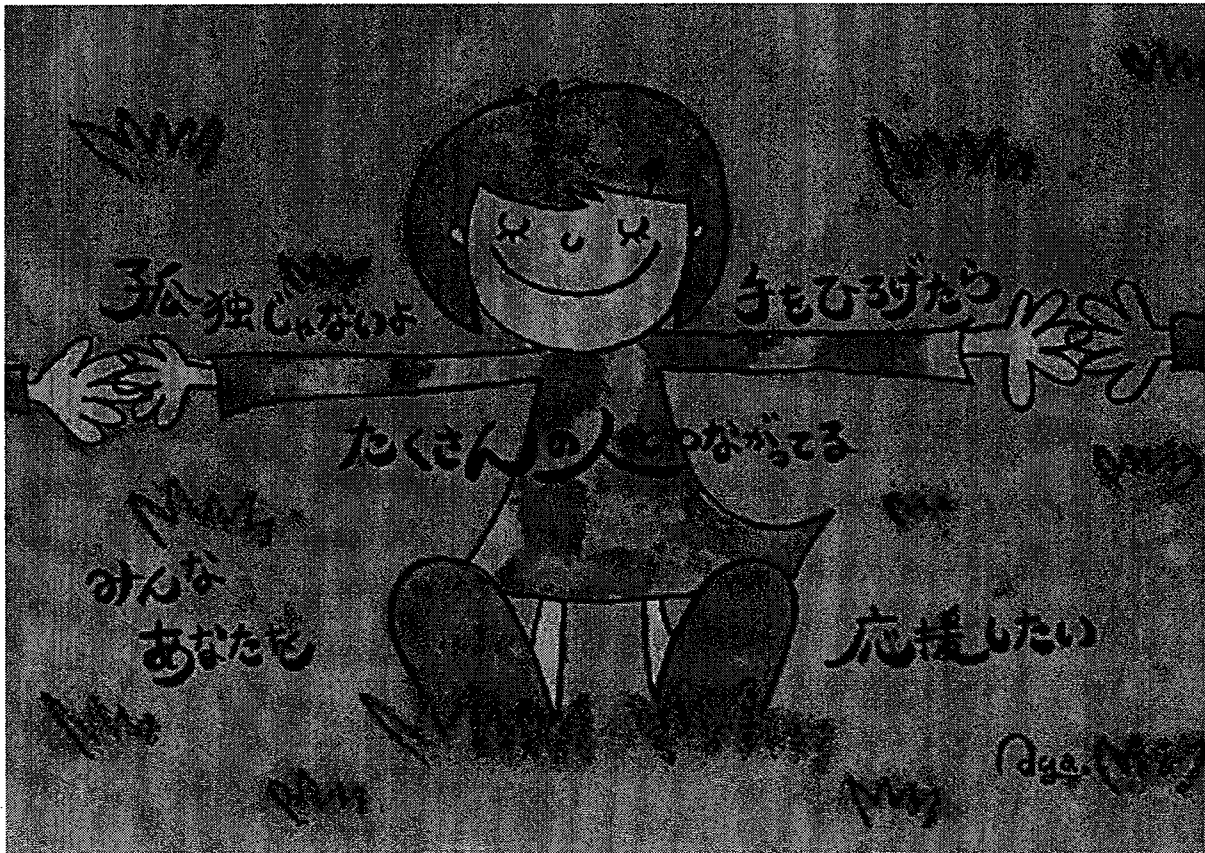 孤独じゃないよ
手をひろげたら
たくさんの人とつながってる
みんな
あなたを
応援したい